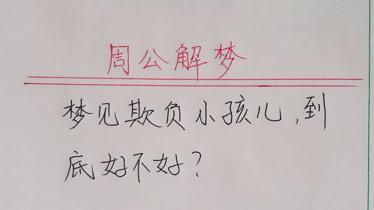 周公解梦
梦见欺负小孩儿,到
底好不好?